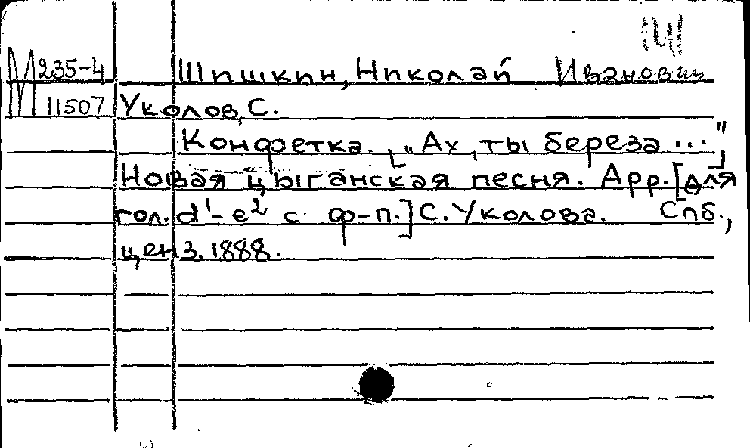 М 235-4 Шишкин, Николай Иванович
11507 Уколов, С.
Конфетка. [„Ах, ты береза ..."]
Новая цыганская песня. Арр. [для
гол. d¹-e² с ф-п.] С. Уколова. Спб.,
ценз. 1888.